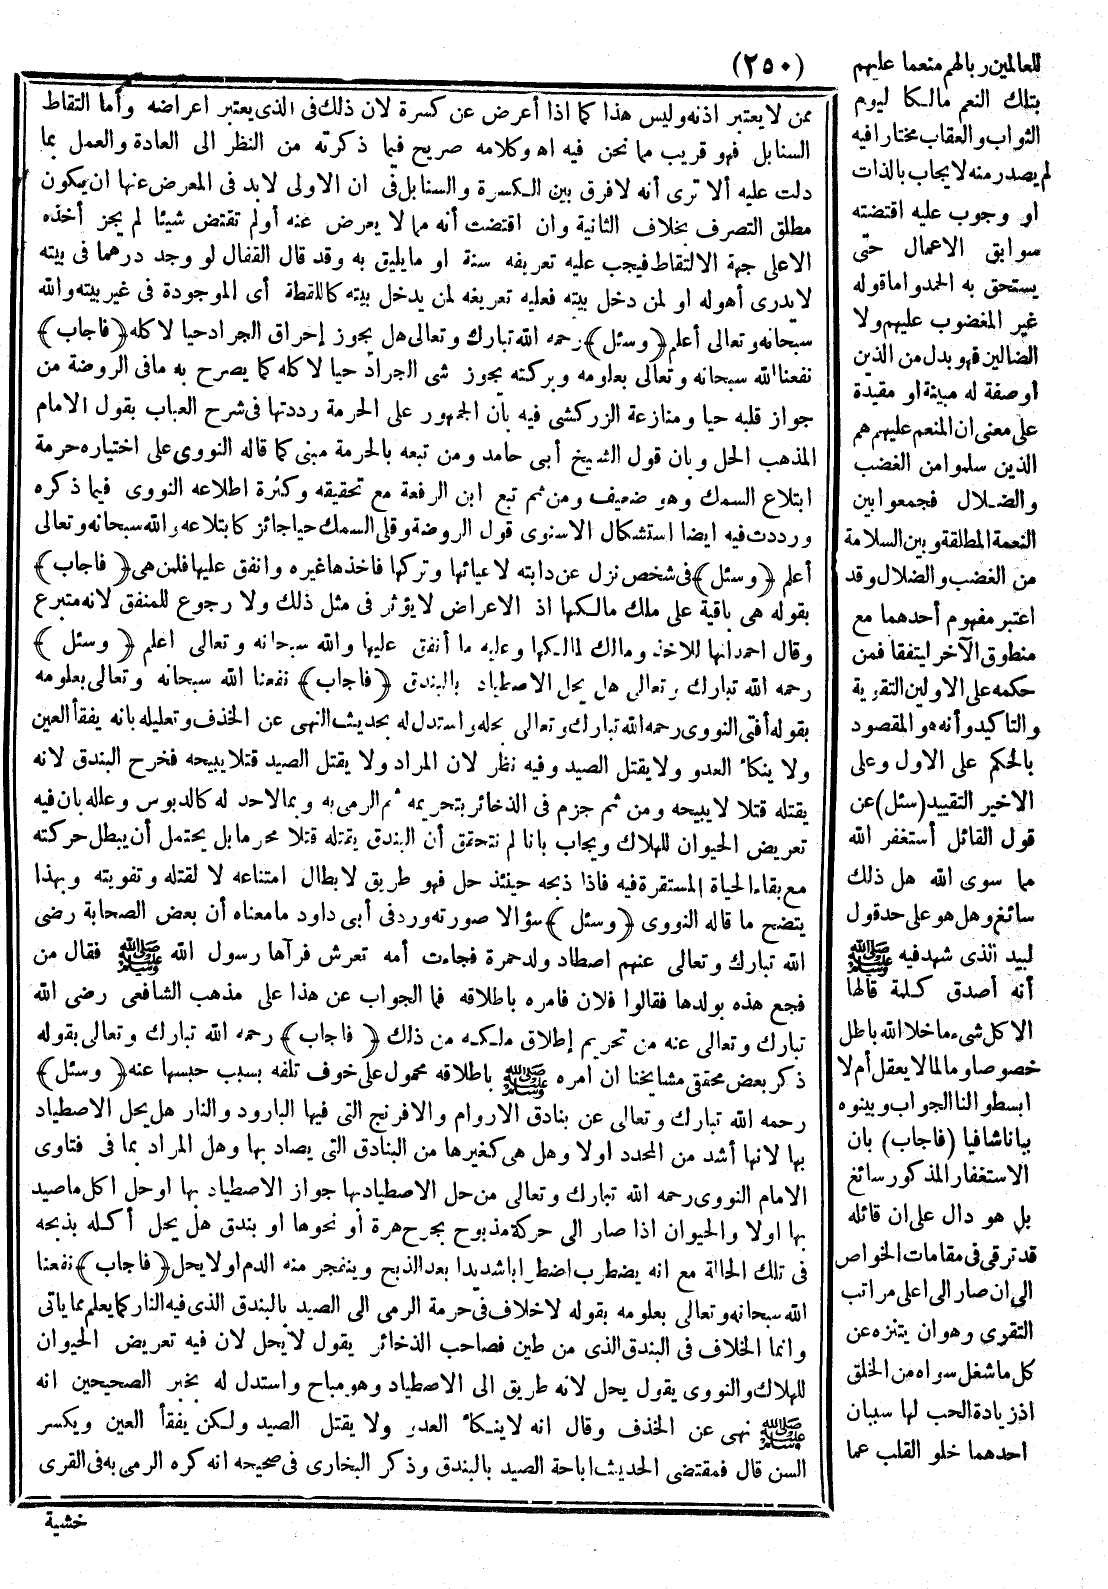 (٢٥٠)
ممن لا يعتبر اذنه وليس هذا كما اذا أعرض عن كسرة لان ذلك فى الذى يعتبر اعراضه وأما التقاط
السنابل فهو قريب مما نحن فيه اه وكلامه صريح فيما ذكرته من النظر الى العادة والعمل بما
دلت عليه ألا ترى أنه لا فرق بين الكسرة والسنابل فى ان الاولى لابد فى المعرض عنها ان يكون
مطلق التصرف بخلاف الثانية وان اقتضت أنه مما لا يعرض عنه أولم تقتض شيئا لم يجز أخذه
الاعلى جهة الالتقاط فيجب عليه تعريفه سنة او ما يليق به وقد قال القفال لو وجد درهما فى بيته
لا يدرى أهوله او لمن دخل بيته فعليه تعريفه لمن يدخل بيته كاللقطة أى الموجودة فى غير بيته والله
سبحانه وتعالى أعلم ﴿وسئل﴾ رحمه الله تبارك وتعالى هل يجوز إحراق الجراد حيا لاكله ﴿فاجاب﴾
نفعنا الله سبحانه وتعالى بعلومه وبركته يجوز شى الجراد حيا لاكله كما يصرح به مافى الروضة من
جواز قلبه حيا ومنازعة الزركشى فيه بأن الجمهور على الحرمة رددتها فى شرح العباب بقول الامام
المذهب الحل وبان قول الشيخ أبى حامد ومن تبعه بالحرمة مبنى كما قاله النووى على اختياره حرمة
ابتلاع السمك وهو ضعيف ومن ثم تبع ابن الرفعة مع تحقيقه وكثرة اطلاعه النووى فيما ذكره
ورددت فيه ايضا استشكال الاسنوى قول الروضة وقلى السمك حيا جائز كابتلاعه والله سبحانه وتعالى
أعلم ﴿وسئل﴾ فى شخص نزل عن دابته لاعيائها وتركها فاخذها غيره وانفق عليها فلمن هى ﴿فاجاب﴾
بقوله هى باقية على ملك مالكها اذ الاعراض لا يؤثر فى مثل ذلك ولا رجوع للمنفق لانه متبرع
وقال احمد انها للاخذ ومالك لمالكها وعليه ما أنفق عليها والله سبحانه وتعالى اعلم ﴿وسئل﴾
رحمه الله تبارك وتعالى هل يحل الاصطياد بالبندق ﴿فاجاب﴾ نفعنا الله سبحانه وتعالى بعلومه
بقوله أفتى النووى رحمه الله تبارك وتعالى بحله واستدل له بحديث النهى عن الخذف وتعليله بانه يفقأ العين
ولا ينكأ العدو ولا يقتل الصيد وفيه نظر لان المراد ولا يقتل الصيد قتلا يبيحه فخرج البندق لانه
يقتله قتلا لا يبيحه ومن ثم جزم فى الذخائر بتحريمه ثم الرمى به وبمالاحد له كالدبوس وعلله بان فيه
تعريض الحيوان للهلاك ويجاب بانا لم نتحقق أن البندق يقتله قتلا محرما بل يحتمل أن يبطل حركته
مع بقاء الحياة المستقرة فيه فاذا ذبحه حينئذ حل فهو طريق لابطال امتناعه لا لقتله وتفويته وبهذا
يتضح ما قاله النووى ﴿وسئل﴾ سؤالا صورته ورد فى أبى داود ما معناه أن بعض الصحابة رضى
الله تبارك وتعالى عنهم اصطاد ولد حمرة فجاءت أمه تعرش فرآها رسول الله ﷺ فقال من
فجع هذه بولدها فقالوا فلان فامره باطلاقه فما الجواب عن هذا على مذهب الشافعى رضى الله
تبارك وتعالى عنه من تحريم إطلاق ملكه من ذلك ﴿فاجاب﴾ رحمه الله تبارك وتعالى بقوله
ذكر بعض محققى مشايخنا ان أمره ﷺ باطلاقه محمول على خوف تلفه بسبب حبسها عنه ﴿وسئل﴾
رحمه الله تبارك وتعالى عن بنادق الاروام والافرنج التى فيها البارود والنار هل يحل الاصطياد
بها لانها أشد من المحدد اولا وهل هى كغيرها من البنادق التى يصاد بها وهل المراد بما فى فتاوى
الامام النووى رحمه الله تبارك وتعالى من حل الاصطياد بها جواز الاصطياد بها او حل اكل ماصيد
بها اولا والحيوان اذا صار الى حركة مذبوح بجرح هرة أو نحوها او بندق هل يحل أكله بذبحه
فى تلك الحالة مع انه يضطرب اضطرابا شديدا بعد الذبح وينفجر منه الدم او لا يحل ﴿فاجاب﴾ نفعنا
الله سبحانه وتعالى بعلومه بقوله لا خلاف فى حرمة الرمى الى الصيد بالبندق الذى فيه النار كما يعلم مما ياتى
وانما الخلاف فى البندق الذى من طين فصاحب الذخائر يقول لا يحل لان فيه تعريض الحيوان
للهلاك والنووى يقول يحل لانه طريق الى الاصطياد وهو مباح واستدل له بخبر الصحيحين انه
ﷺ نهى عن الخذف وقال انه لا ينكأ العدو ولا يقتل الصيد ولكن يفقأ العين ويكسر
السن قال فمقتضى الحديث اباحة الصيد بالبندق وذكر البخارى فى صحيحه انه كره الرمى به فى القرى
خشية
للعالمين ربا لهم منعما عليهم
بتلك النعم مالكا ليوم
الثواب والعقاب مختارا فيه
لم يصدر منه لا يجاب بالذات
او وجوب عليه اقتضته
سوابق الاعمال حتى
يستحق به الحمد واما قوله
غير المغضوب عليهم ولا
الضالين فهو بدل من الذين
أو صفة له مبينة او مقيدة
على معنى ان المنعم عليهم هم
الذين سلموا من الغضب
والضلال فجمعوا بين
النعمة المطلقة وبين السلامة
من الغضب والضلال وقد
اعتبر مفهوم أحدهما مع
منطوق الآخر ليتفقا فمن
حكمه على الاولين التقوية
والتاكيد وأنه هو المقصود
بالحكم على الاول وعلى
الاخير التقييد (سئل) عن
قول القائل أستغفر الله
مما سوى الله هل ذلك
سائغ وهل هو على حد قول
لبيد الذى شهد فيه ﷺ
أنه أصدق كلمة قالها
الا كل شىء ما خلا الله باطل
خصوصا وما لما لا يعقل أم لا
ابسطوا لنا الجواب وبينوه
بيانا شافيا (فاجاب) بان
الاستغفار المذكور سائغ
بل هو دال على ان قائله
قد ترقى فى مقامات الخواص
الى ان صار الى اعلى مراتب
التقوى وهو ان يتنزه عن
كل ما شغل سواه من الخلق
اذ زيادة الحب لها سببان
احدهما خلو القلب عما